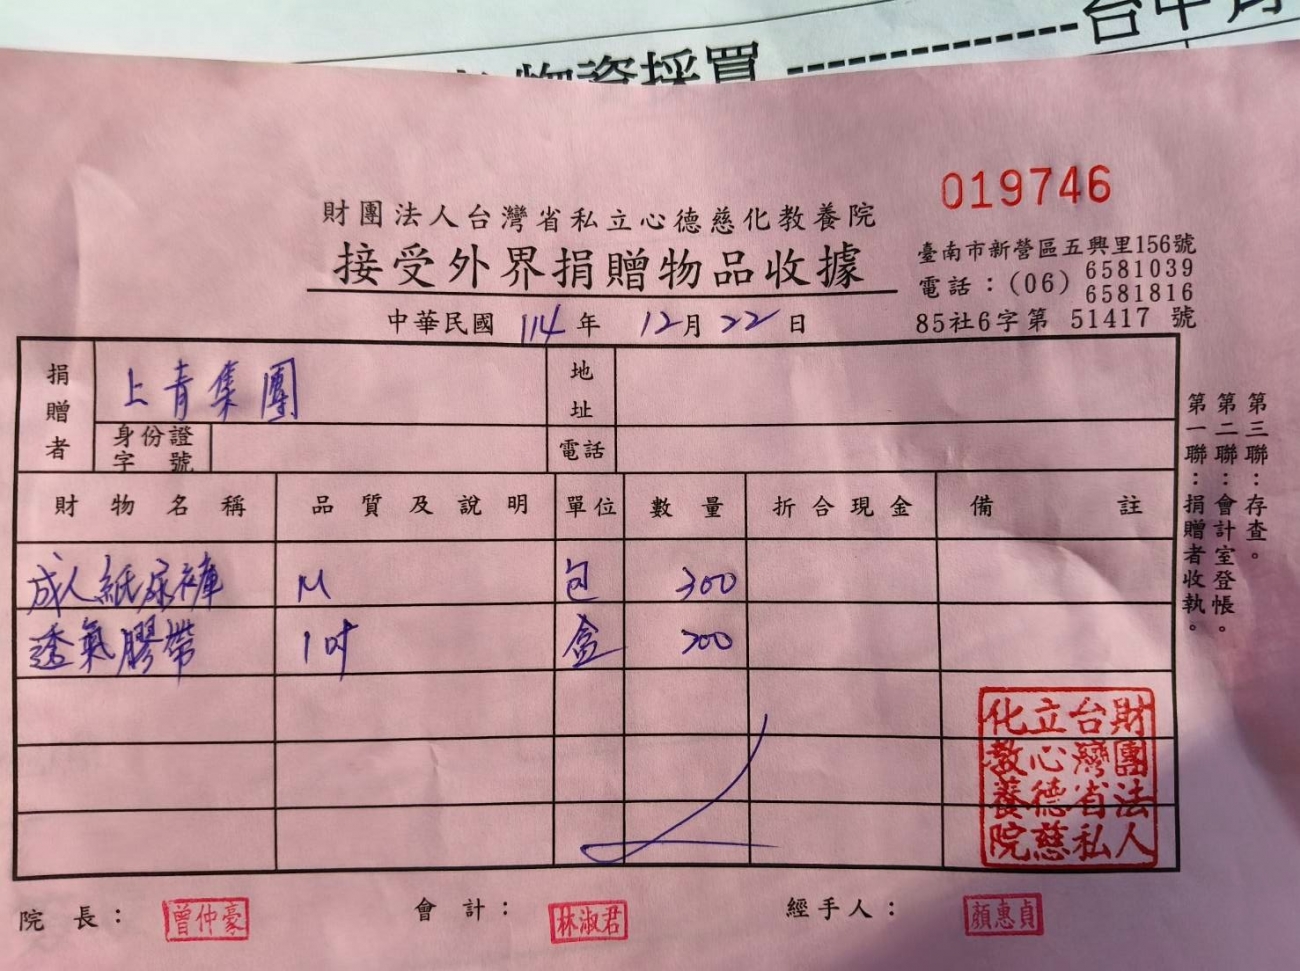 物資採買 ------------- 台中
019746
財團法人台灣省私立心德慈化教養院
接受外界捐贈物品收據
臺南市新營區五興里156號
電話：(06) 6581039
6581816
85社6字第 51417 號
中華民國 114 年 12 月 22 日
捐贈者 上青集團 地址
身份證字號 電話
財物名稱 品質及說明 單位 數量 折合現金 備註
成人紙尿褲 M 包 300
透氣膠帶 1吋 盒
第一聯：捐贈者收執。
第二聯：會計室登帳。
第三聯：存查。
財團法人
台灣省私
立心德慈
化教養院
院長： 曾仲豪
會計： 林淑君
經手人： 顏惠貞